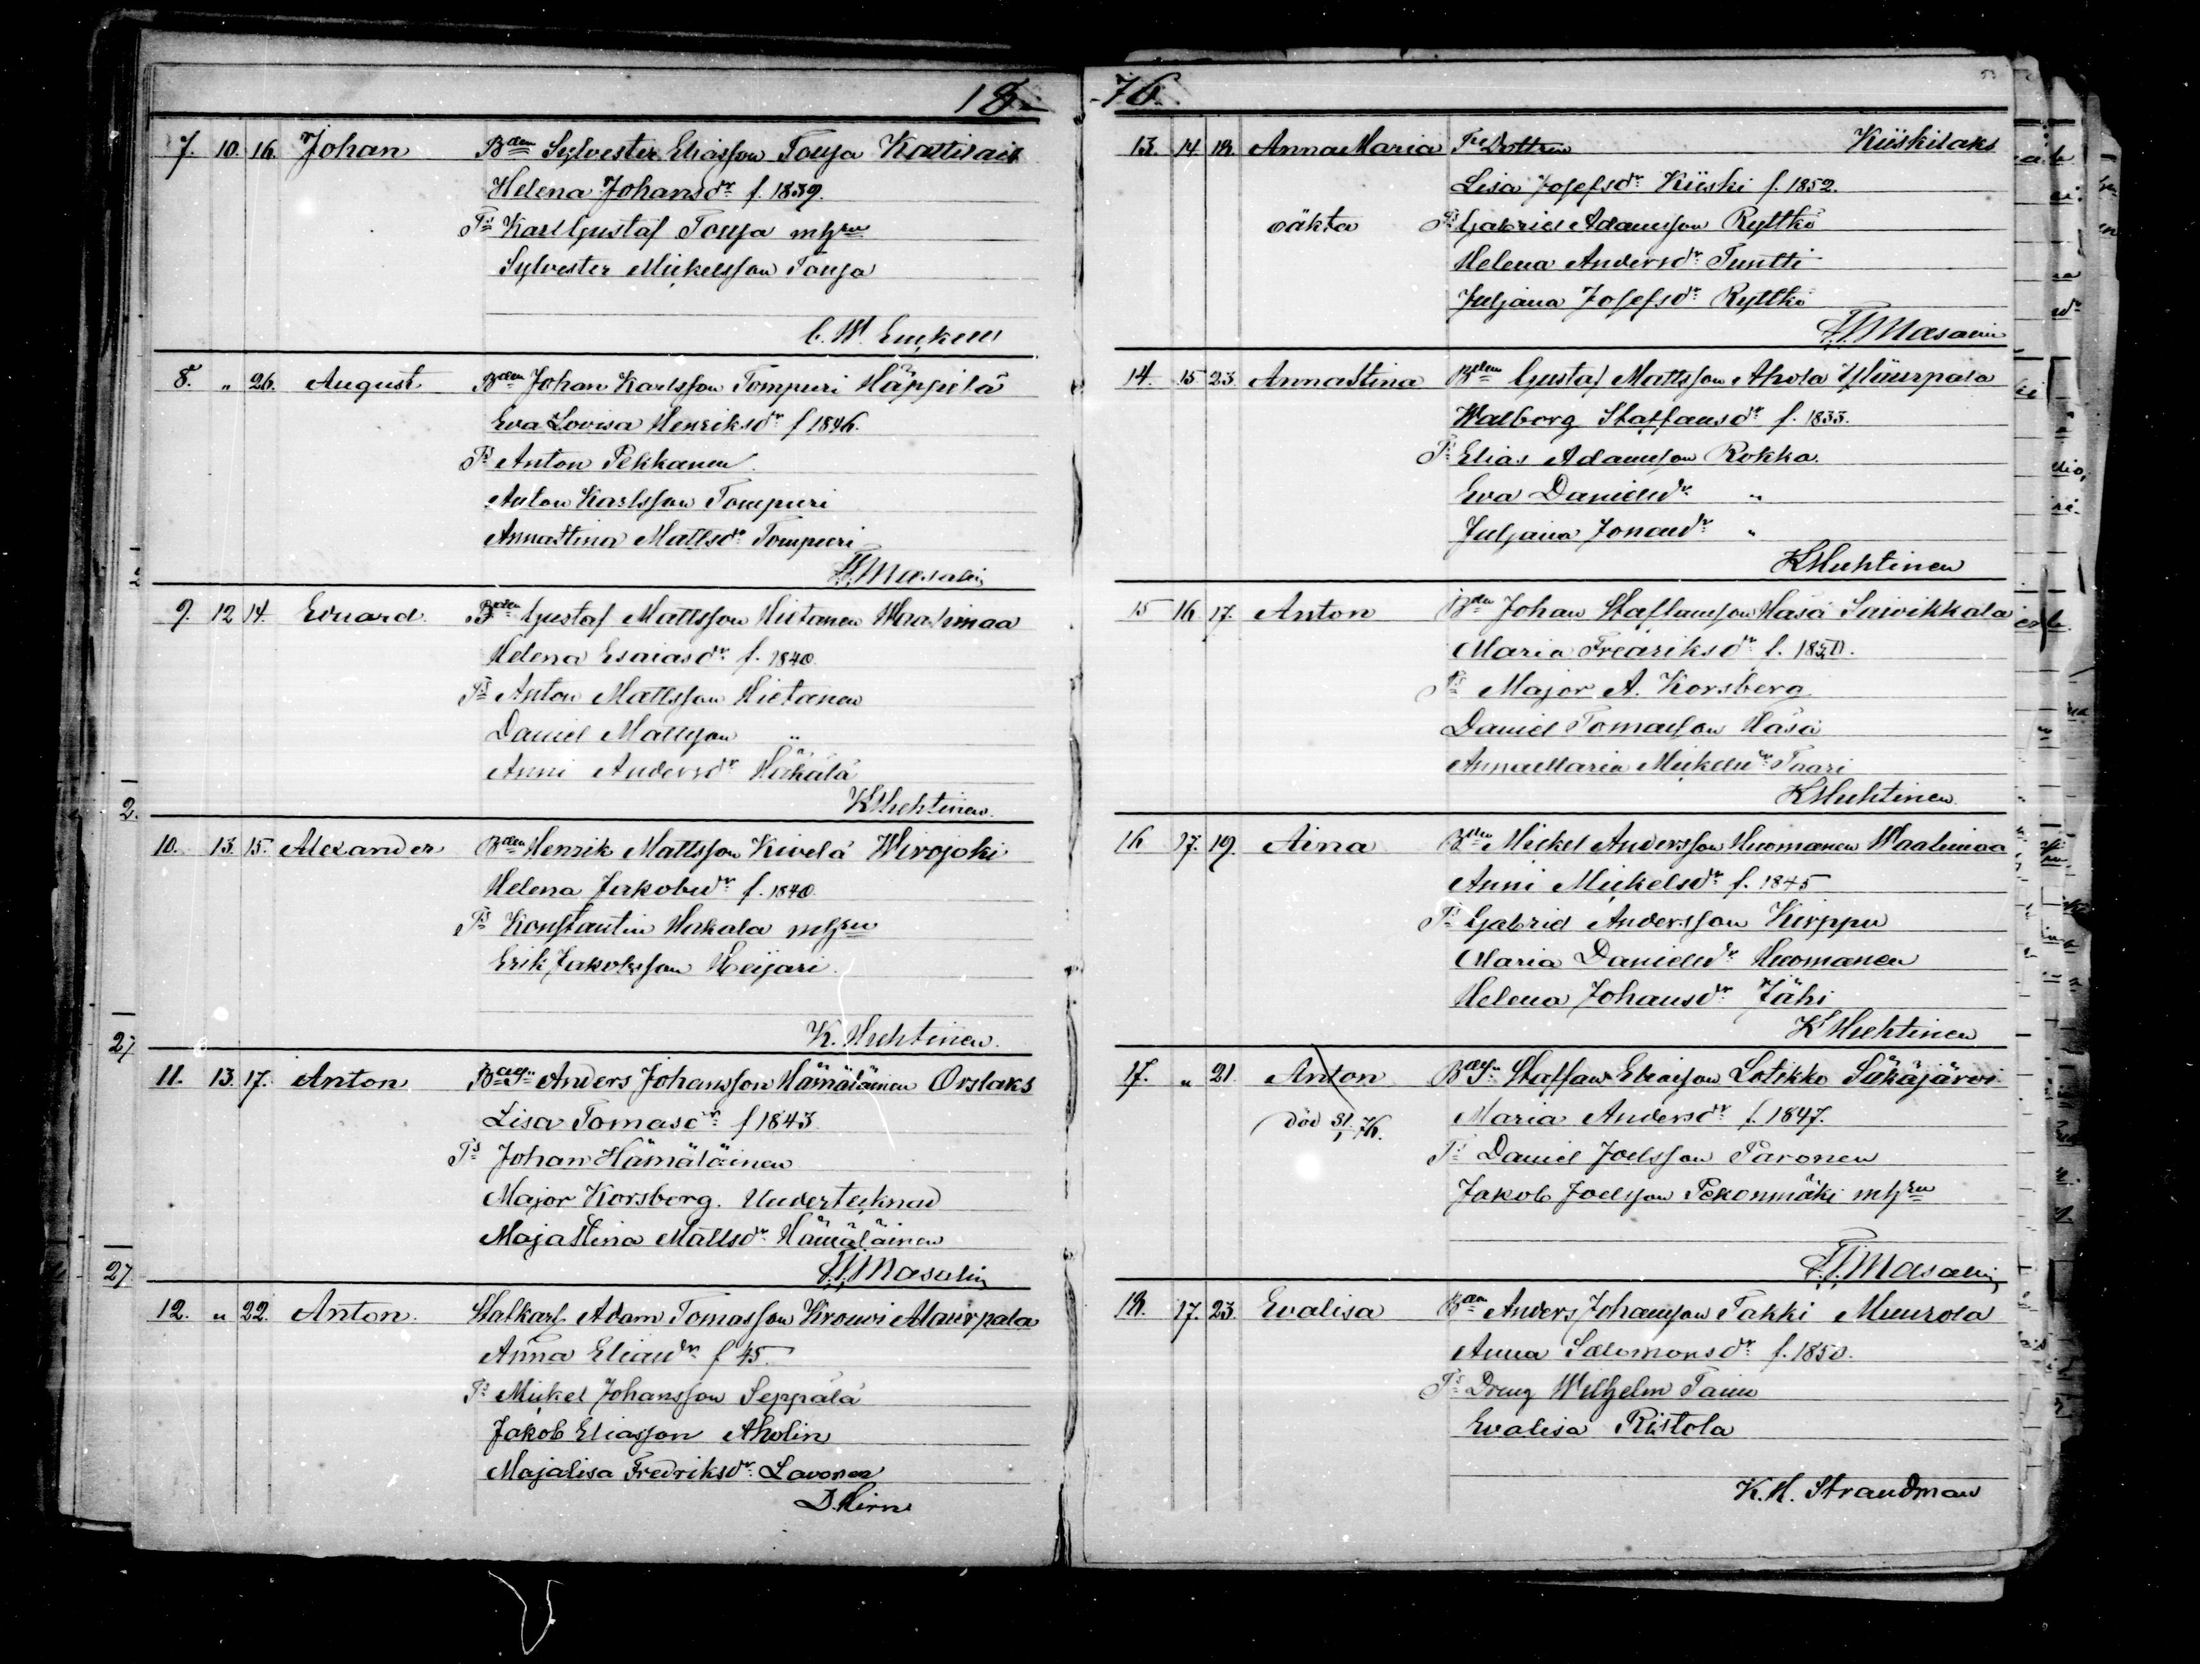 18
7. 10. 16. Johan Bden Sylvester Eliasson Touja Kattilais
Helena Johansdr f. 1839.
Ts Karl Gustaf Touja mhru
Sylvester Mickelsson Touja
C. W. Enckell
8. " 26. August Bden Johan Karlsson Tompuri Häppilä
Eva Lovisa Henriksdr f 1846.
Ts Anton Pekkanen
Anton Karlsson Tompuri
Annastina Mattsdr Tompuri
Masalin
9. 12 14. Eduard Bden Gustaf Mattsson Hietanen Waalimaa
Helena Esaiasdr f. 1840.
Ts Anton Mattsson Hietanen
Daniel Mattsson "
Anni Andersdr Häkälä
K Huhtinen.
2.
10. 13. 15. Alexander Bden Henrik Mattsson Kivelä Wirojoki
Helena Jakobsdr f. 1840.
Ts Konstantin Hakala mhru
Erik Jakobsson Heijari
K. Huhtinen.
27
11. 13. 17. Anton Anders Johansson Hämäläinen Orslaks
Lisa Tomasdr f 1843
Ts Johan Hämäläinen
Major Korsberg. Undertecknad
Majastina Mattsdr Hämäläinen
Masalin
27
12. " 22. Anton. Statkarl Adam Tomasson Krouvi Alaurpala
Anna Eliasdr f 45
Ts Mickel Johansson Seppälä
Jakob Eliasson Aholin
Majalisa Fredriksdr Lavonen
D. Hirn
76.
13. 14. 18. AnnaMaria Dottren Kiiskilaks
Lisa Josefsdr Kiiski f. 1852.
oäkta Ts Gabriel Adamsson Ryttkö
Helena Andersdr Tuntti
Juljana Josefsdr Ryttkö
Masalin
14. 15 23 Annastina Bden Gustaf Mattsson Ahola
Walborg Staffansdr f. 1833.
Ts Elias Adamsson Rokka.
Eva Danielsdr "
Juljana Jonasdr "
K Huhtinen
15 16 17. Anton Bden Johan Staffansson Häsä Säivikkälä
Maria Fredriksdr f. 1850.
Ts Major A. Korsberg
Daniel Tomasson Häsä
Annamaria Mickelsdr Taari
K Huhtinen.
16 17. 19. Aina Bden Mickel Andersson Huomanen Waalimaa
Anni Mickelsdr f. 1845
Ts Gabriel Andersson Kirppu
Maria Danielsdr Huomanen
Helena Johansdr Jähi
K Huhtinen
17. " 21. Anton Staffan Eliasson Lotikko Säkäjärvi
död 31/1 76. Maria Andersdr f. 1847.
Ts Daniel Joelsson Paronen
Jakob Joelsson Pekonmäki mhru
Masalin
18. 17. 23. Evalisa Anders Johansson Takki Muurola
Anna Salomonsdr f. 1850.
Ts Dreng Wilhelm Taim
Evalisa Ristola
K. H. Strandman